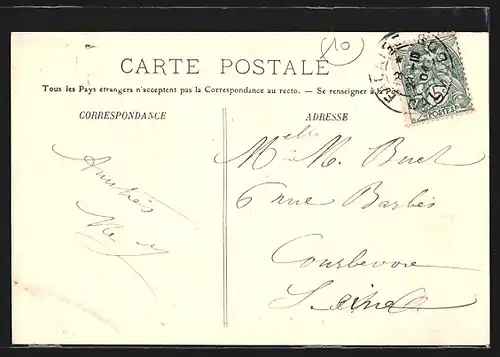 10
CARTE POSTALE
Tous les Pays étrangers n'acceptent pas la Correspondance au recto. — Se renseigner à la
CORRESPONDANCE
ADRESSE
Melle M. Buet
6 rue Barbès
Courbevoie
Seine
Amitiés
5
POSTES